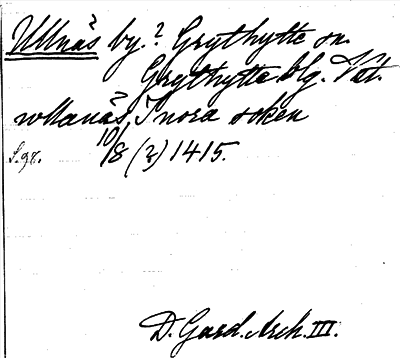 Ullnäs by.? Grythytte sn.
Grythytte blg. Vst.
wllanäs, i nora soken
10/8 (?) 1415.
D. Gard. Arch. III.